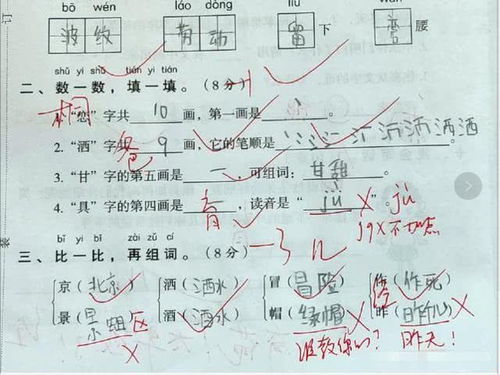 bō wén láo dòng liú wān
波纹 劳动 留下 弯腰
shǔ yi shǔ tián yi tián
二、数一数,填一填。(8分)
1. “恋”字共 10 画,第一画是 丶 。
2. “洒”字共 9 画,它的笔顺是 。
3. “甘”字的第五画是 一 ,可组词: 甘甜
4. “具”字的第四画是 ,读音是“ jù ” X jù
jqx不加点
bǐ yī bǐ zài zǔ cí
三、比一比,再组词。(8分)
京(北京) 洒(洒水) 冒(冒险) 作(作死)
景(景 组) 酒(酒水) 帽(绿帽) 昨( ) X
区 X 谁教你的? 昨天!
订
装